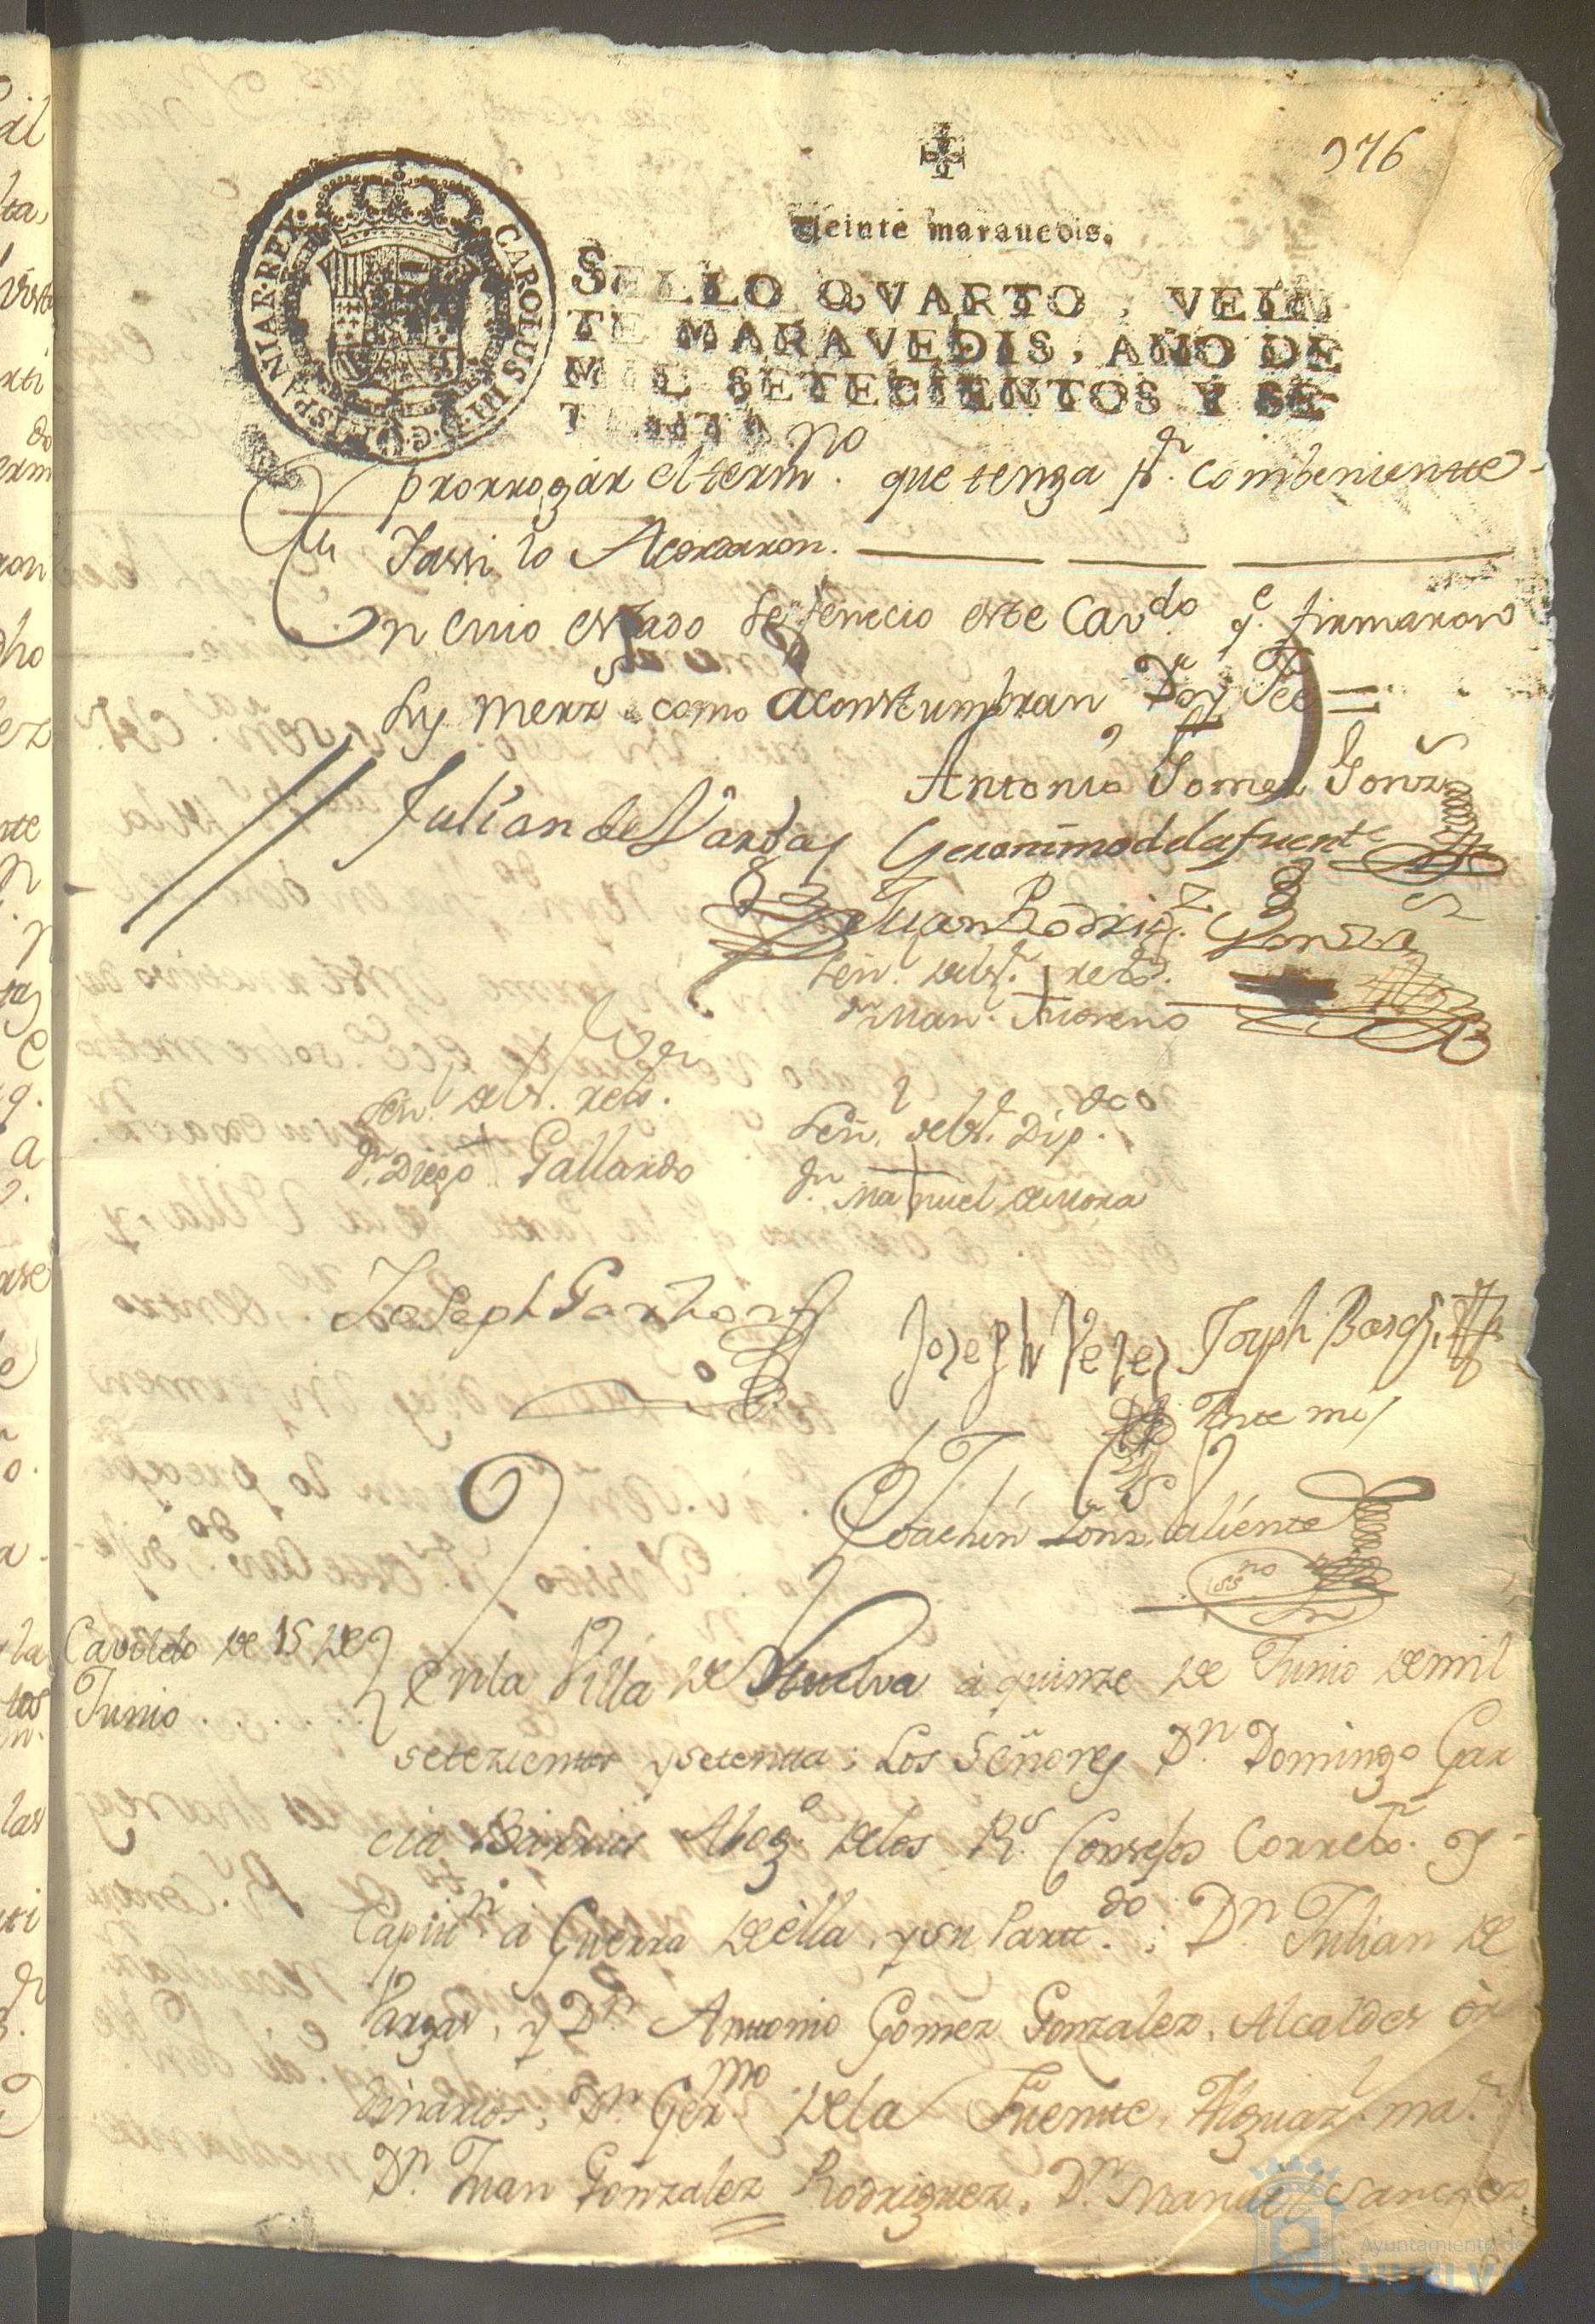 976
Veinte marauedis.
SELLO QVARTO, VEIN
TE MARAVEDIS, AÑO DE
MIL SETECIENTOS Y SE
TENTA
CAROLUS III D.G. HISPANIAR. REX
prorrogar el termno. que tenga pr. combeniente
Yassi lo Acordaron.
En cuio estado se fenecio este Cavdo. qe. firmaron
sus merzs. como acostumbran, Doy Fee =
Antonio Gomez Gonz
Julian de Vargas
Geronimo de la fuente
Juan Rodrigz. Gonza
Señ. del Sr. rexr.
dn. Man. Moreno
Señ. del Sr. rexr.
dn. Diego Gallardo
Señ. del Sr. Dipdo.
dn. Manuel de mora
Joseph Garzon
Joseph Velez
Joseph
Ante mi
Joachin Gonz. Valiente
essno
Cavildo de 15 de
Junio . . . . .
En la Villa de Huelva à quinze de Junio de mil
setezientos y setenta; Los Señores Dn. Domingo Gar
cia Barrios Abogo. de los Rs. Consejos Correxr. y
Capitn. a Guerra de ella, y su Partdo.; Dn. Julian de
Vargas, y Dn. Antonio Gomez Gonzalez, Alcaldes or
dinarios; Dn. Germo. de la Fuente, Alguazl. mar.
Dn. Juan Gonzalez Rodriguez, Dn. Manuel Sanchez
Ayuntamiento de
HUELVA